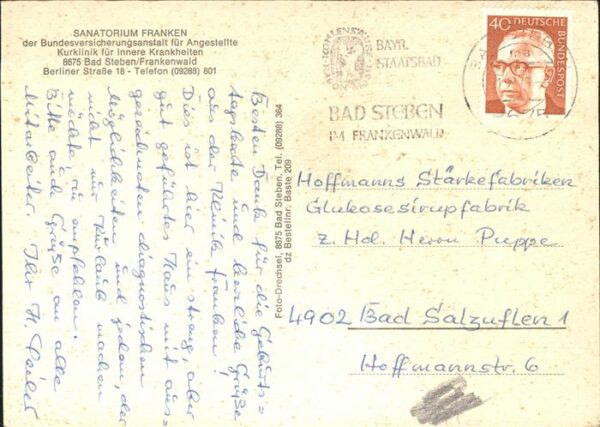 SANATORIUM FRANKEN
der Bundesversicherungsanstalt für Angestellte
Kurklinik für innere Krankheiten
8675 Bad Steben/Frankenwald
Berliner Straße 18 - Telefon (09288) 801
BAYR.
STAATSBAD
BAD STEBEN
IM FRANKENWALD
40 DEUTSCHE
BUNDESPOST
Besten Dank für die Geburts=
tagskarte und herzliche Grüße
aus der Klinik Franken!
Dies ist hier ein streng, aber
gut geführtes Haus mit aus=
gezeichneten diagnostischen
Möglichkeiten und jedem, der
nicht nur Urlaub machen
möchte zu empfehlen.
Bitte auch Grüße an alle
Mitarbeiter. Ihr H.
Foto-Drechsel, 8675 Bad Steben, Tel. (09288) 364
dz Bestellnr. Baste 209
Hoffmanns Stärkefabriken
Glukosesirupfabrik
z. Hd. Herrn Puppe
4902 Bad Salzuflen 1
Hoffmannstr. 6